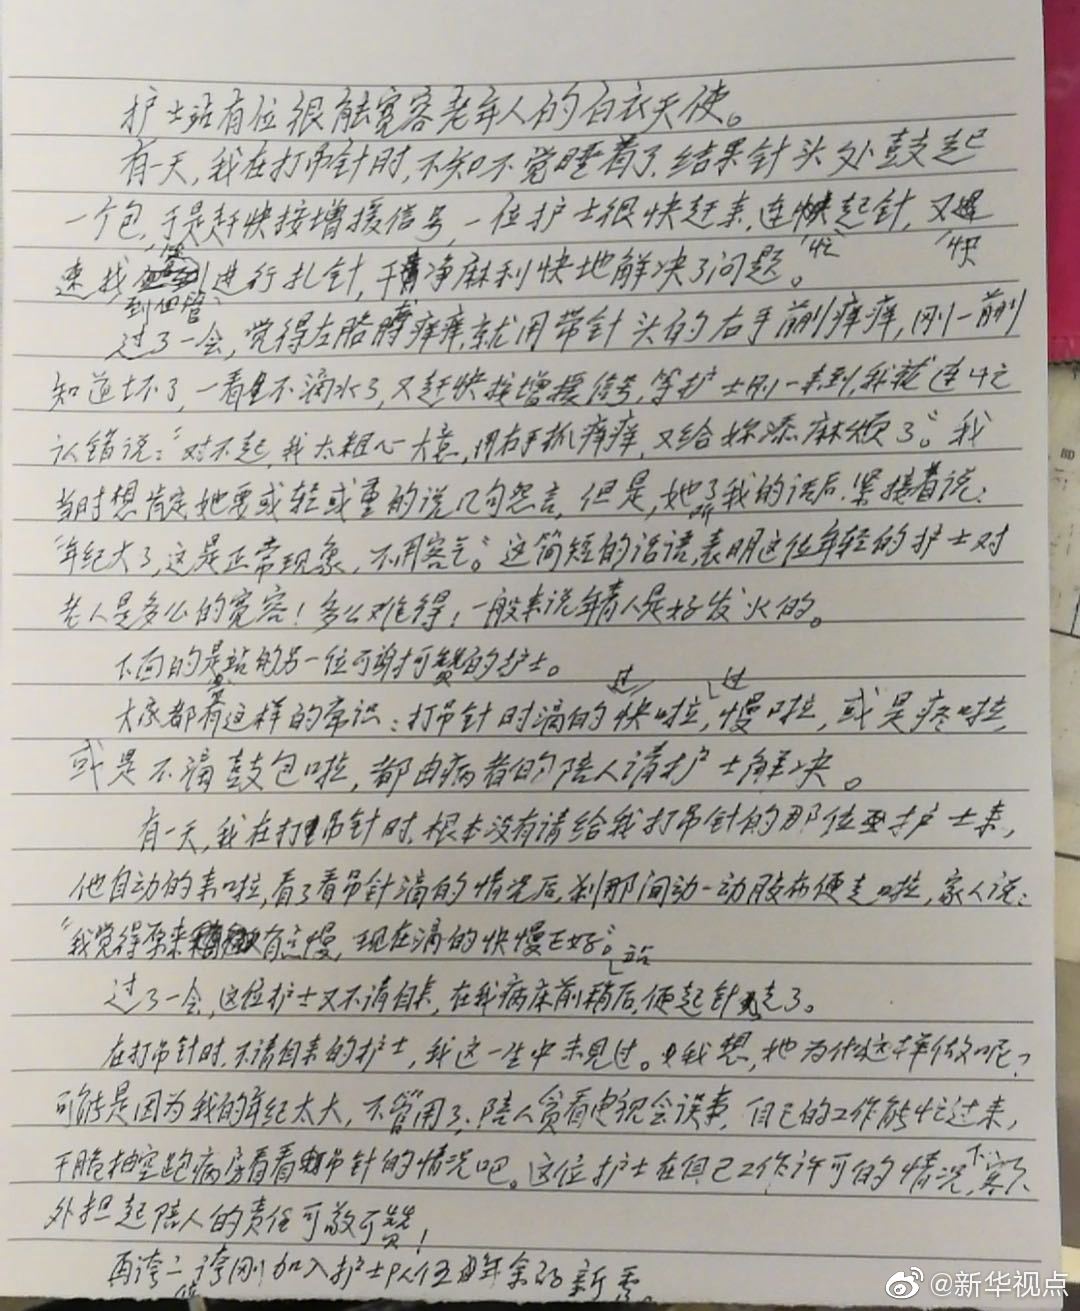 护士站有位很能宽容老年人的白衣天使。
有一天,我在打吊针时,不知不觉睡着了,结果针头处鼓起
一个包,于是赶快按增援信号,一位护士很快赶来,连忙起针,又快
速找到血管进行扎针,干净麻利快地解决了问题。
过了一会,觉得左胳膊痒痒,就用带针头的右手前刂痒痒,刚一前刂
知道坏了,一看是不滴水了,又赶快按增援信号,等护士刚一来到,我就连忙
认错说:“对不起,我太粗心大意,用右手抓痒痒,又给妳添麻烦了。”我
当时想肯定她要或轻或重的说几句怨言,但是,她听了我的话后,紧接着说:
“年纪大了,这是正常现象,不用客气。”这简短的话语,表明这位年轻的护士对
老人是多么的宽容!多么难得!一般来说年青人是好发火的。
下面的是站的另一位可谢可赞的护士。
大家都有这样的常识:打吊针时滴的过快啦,过慢啦,或是疼啦,
或是不滴鼓包啦,都由病者的陪人请护士解决。
有一天,我在打吊针时,根本没有请给我打吊针的那位护士来,
他自动的来啦,看了看吊针滴的情况后,刹那间动一动胶布便走啦,家人说:
“我觉得原来有点慢,现在滴的快慢正好。”
过了一会,这位护士又不请自来,在我病床前稍站后,便起针走了。
在打吊针时,不请自来的护士,我这一生中未见过。我想,她为什么这样做呢?
可能是因为我的年纪太大,不管用了,陪人贪看电视会误事,自己的工作能忙过来,
干脆抽空跑病房看看吊针的情况吧。这位护士在自己工作许可的情况下,额
外担起陪人的责任可敬可赞!
再夸一夸刚加入护士队伍年余的新
@新华视点